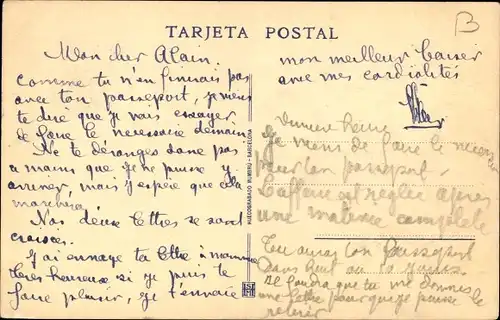 TARJETA POSTAL
B
Mon cher Alain.
Comme tu n'en finnais pas
avec ton passeport, je viens
te dire que je vais essayer
de faire le necessaire demain
Ne te déranges donc pas
a moins que je ne puisse y
arriver, mais j'espere que cela
marchera.
Nos deux lettres se sont
croisées.
J'ai envoyé ta lettre à maman
tres heureuse si je puis te
faire plaisir, je t'envoie
HUECOGRABADO MUMBRÚ - BARCELONA
mon meilleur baiser
avec mes cordialités
Derniere heure
Je viens de faire le necessaire
pour ton passeport.
L'affaire est reglée après
une matinée complete
Tu auras ton Passeport
dans huit ou 10 jours.
Il faudra que tu me donnes
une lettre pour que je puisse le
retirer